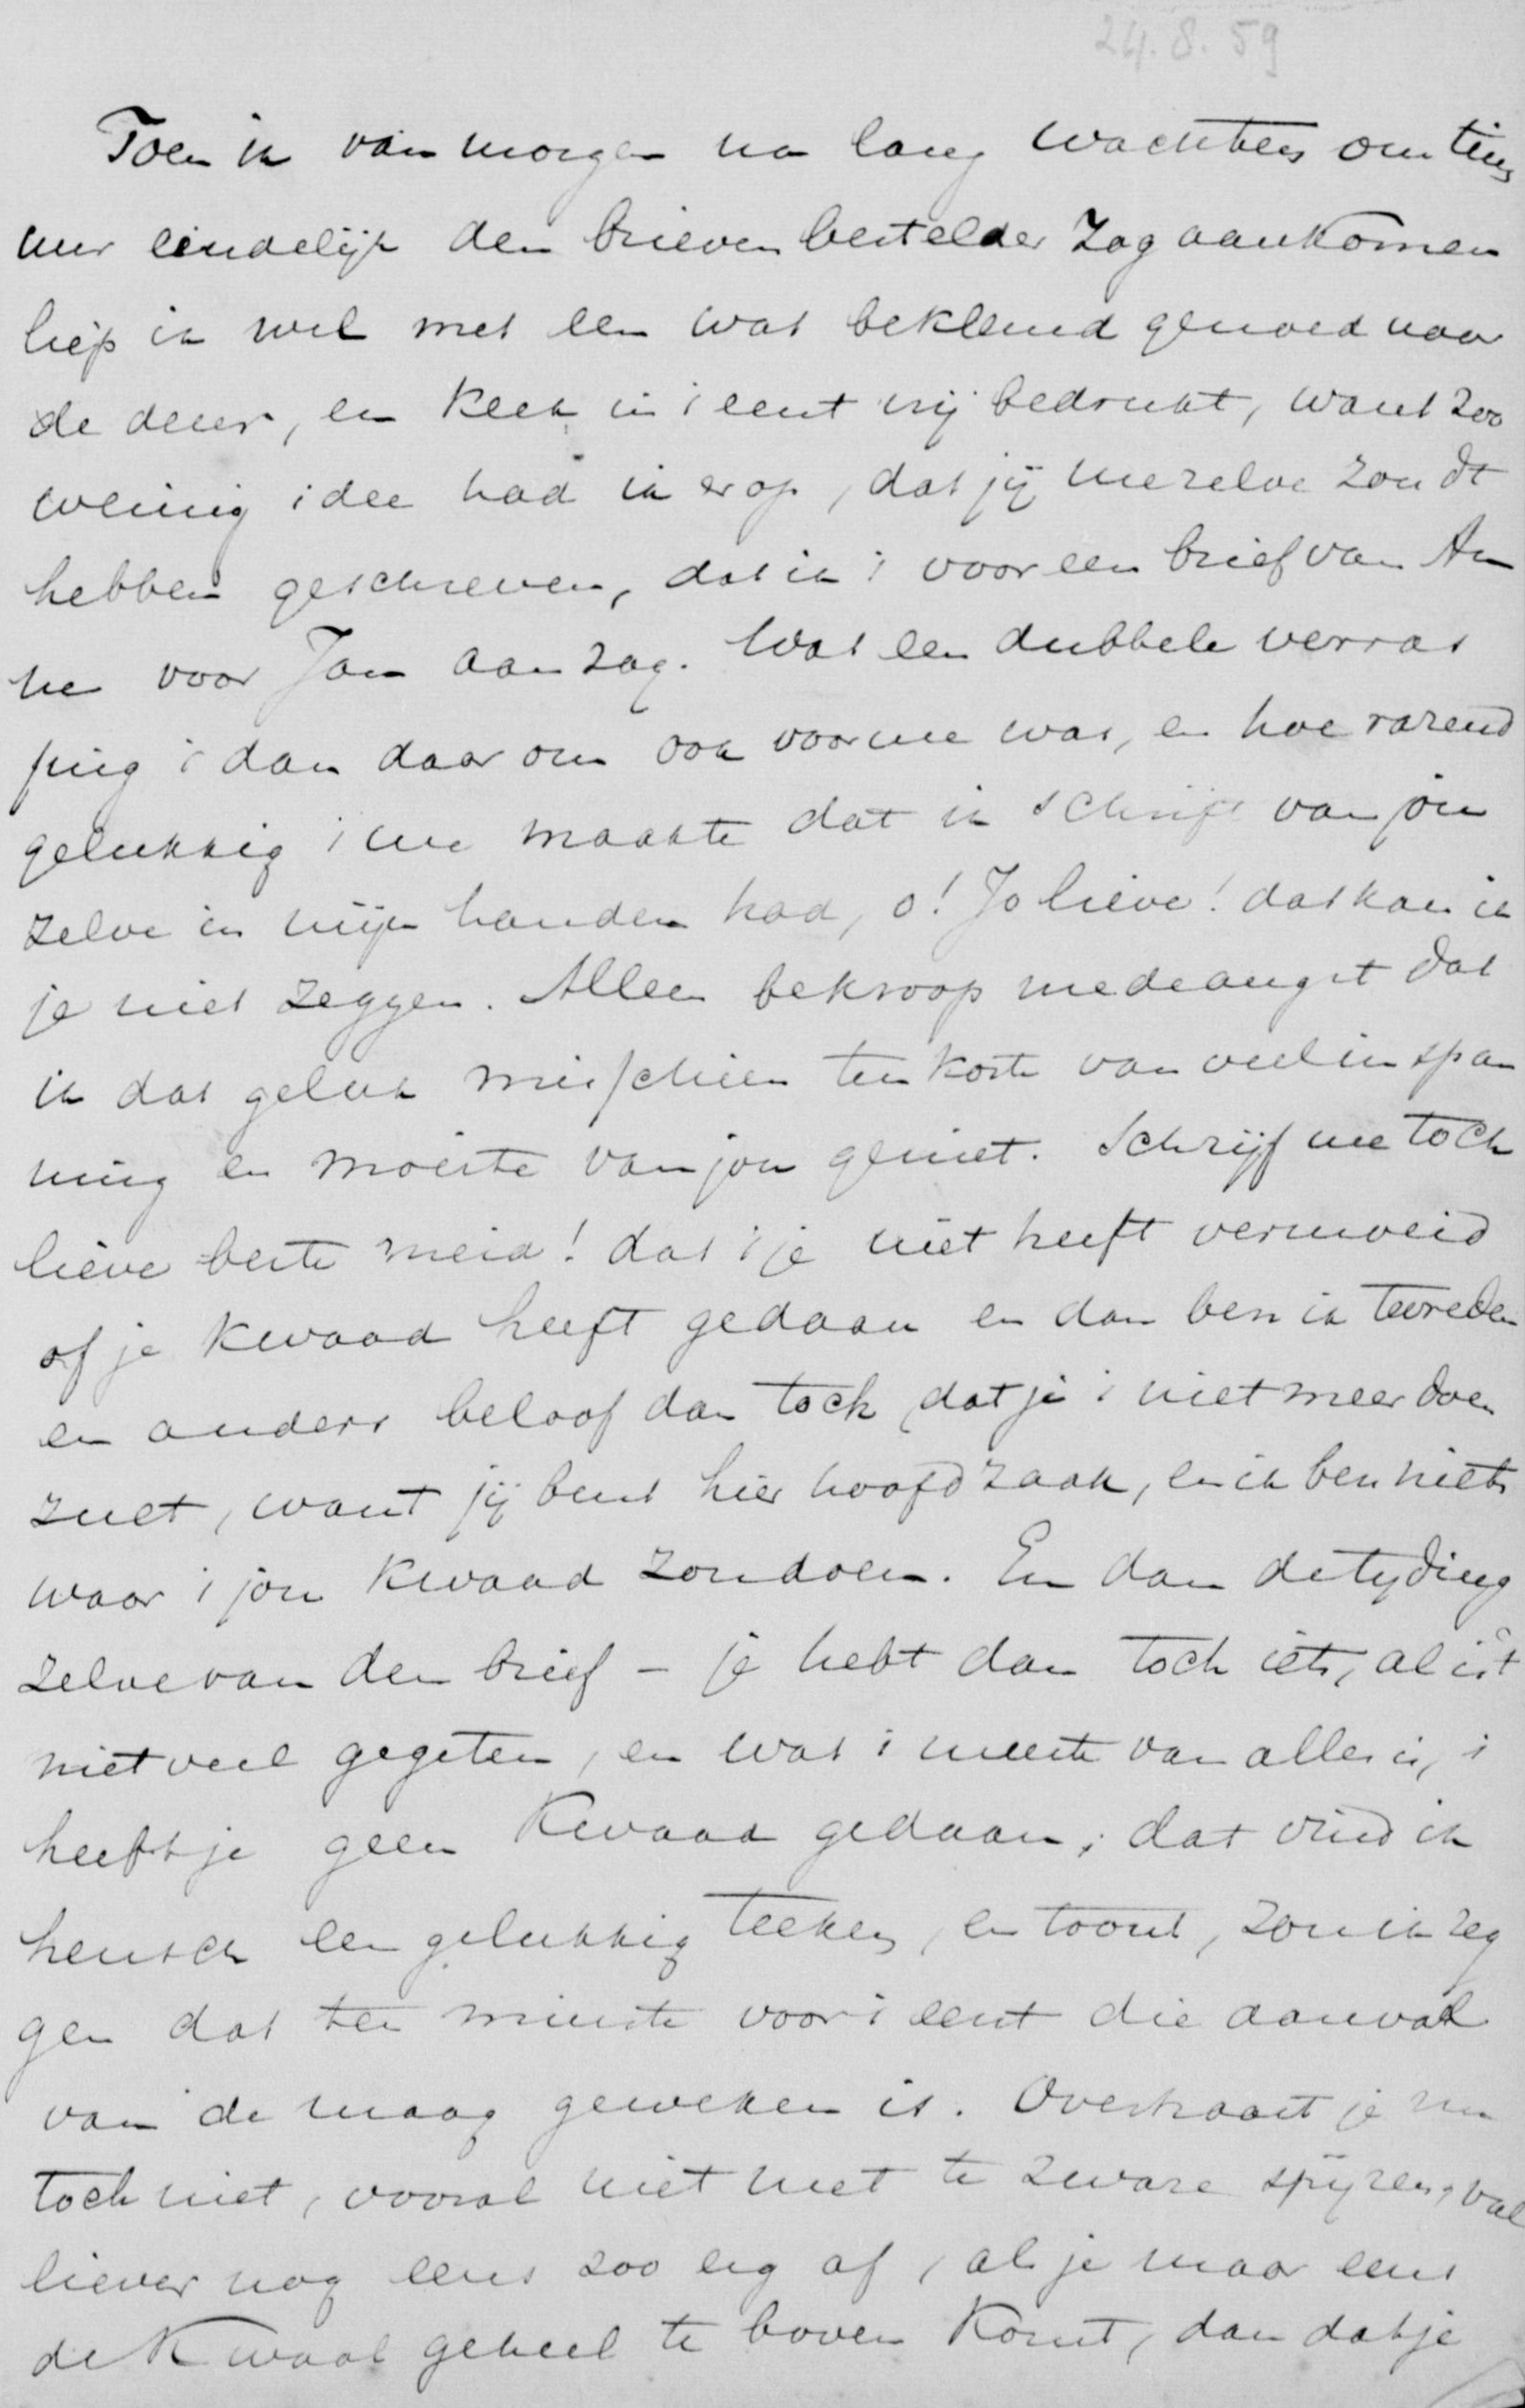 24.8.59
Toen ik van morgen na lang wachten om tien
uur eindelijk den brieven besteller zag aankomen
liep ik wel met een wat beklemd gemoed naar
de deur, en keek in i eerst vrij bedrukt, want zoo
weinig idee had ik er op, dat jij me zelve zoudt
hebben geschreven, dat ik i voor een brief van An
ne voor Jan aanzag. Wat een dubbele verras
sing i dan daarom ook voor me was, en hoe razend
gelukkig i me maakte dat ik schrift van jou
zelve in mijn handen had, o! Jo lieve! dat kan ik
je niet zeggen. Alleen bekroop me de angst dat
ik dat geluk misschien ten koste van veel inspan
ning en moeite van jou geniet. Schrijf me toch
lieve beste meid! dat i je niet heeft vermoeid
of je kwaad heeft gedaan en dan ben ik tevreden
en anders beloof dan toch dat je i niet meer doen
zult, want jij bent hier hoofdzaak, en ik ben niets
waar i jou kwaad zou doen. En dan de tijding
zelve van den brief - je hebt dan toch iets, al is t
niet veel gegeten, en wat i meeste van alles is, i
heeft je geen kwaad gedaan; dat vind ik
heusch een gelukkig teeken, en toont, zou ik zeg
gen dat ten minste voor i eerst die aanval
van de maag geweken is. Overhaast je nu
toch niet, vooral niet met te zware spijzen, val
liever nog eens zoo erg af, als je maar eens
de kwaal geheel te boven komt, dan dat je